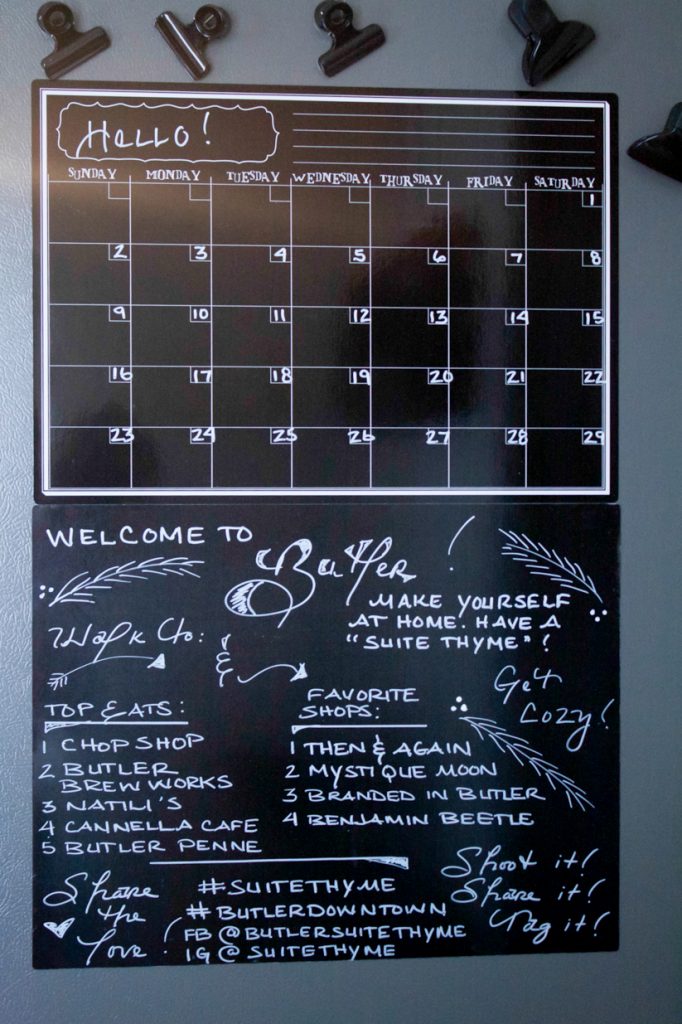 HELLO!
SUNDAY MONDAY TUESDAY WEDNESDAY THURSDAY FRIDAY SATURDAY
1
2 3 4 5 6 7 8
9 10 11 12 13 14 15
16 17 18 19 20 21 22
23 24 25 26 27 28 29
WELCOME TO
Butler!
MAKE YOURSELF
AT HOME. HAVE A
"SUITE THYME"!
Walk to:
&
Get
Cozy!
TOP EATS:
1 CHOP SHOP
2 BUTLER
BREW WORKS
3 NATILI'S
4 CANNELLA CAFE
5 BUTLER PENNE
FAVORITE
SHOPS:
1 THEN & AGAIN
2 MYSTIQUE MOON
3 BRANDED IN BUTLER
4 BENJAMIN BEETLE
Share
the
Love!
#SUITETHYME
#BUTLERDOWNTOWN
FB @BUTLERSUITETHYME
IG @SUITETHYME
Shoot it!
Share it!
Tag it!